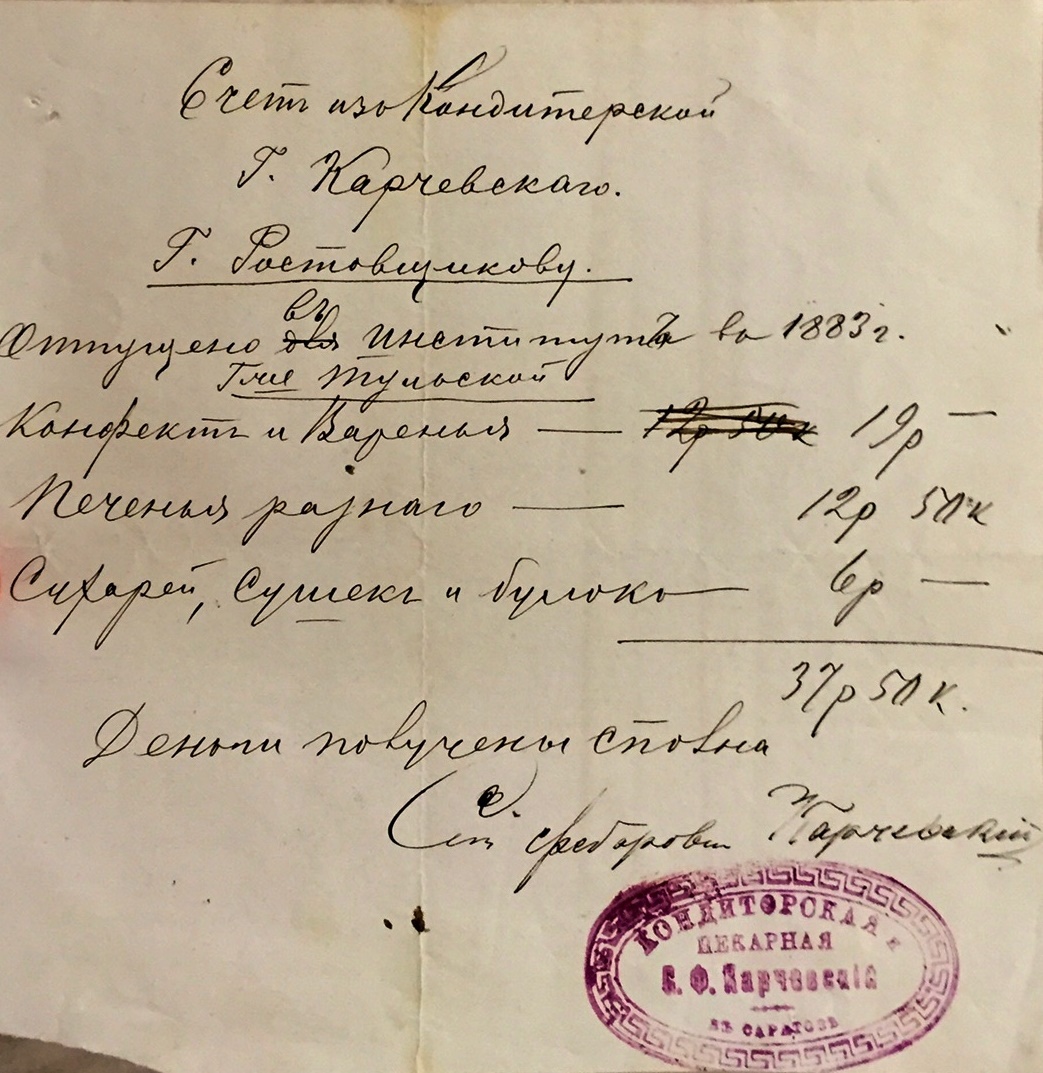 Счетъ изъ Кондитерской
Г. Карчевскаго.
Г. Ростовщикову.
въ
Отпущено для Институтъ во 1883 г.
Г-же Тульской
Конфектъ и Варенья — 12р 50к 19р —
Печенья разнаго — 12р 50к
Сухарей, Сушекъ и булокъ — 6р —
37р 50к.
Деньги получены сполна
Федоровъ Карчевскій
КОНДИТОРСКАЯ и
ПЕКАРНАЯ
С. Ф. Карчевскій
ВЪ САРАТОВѢ